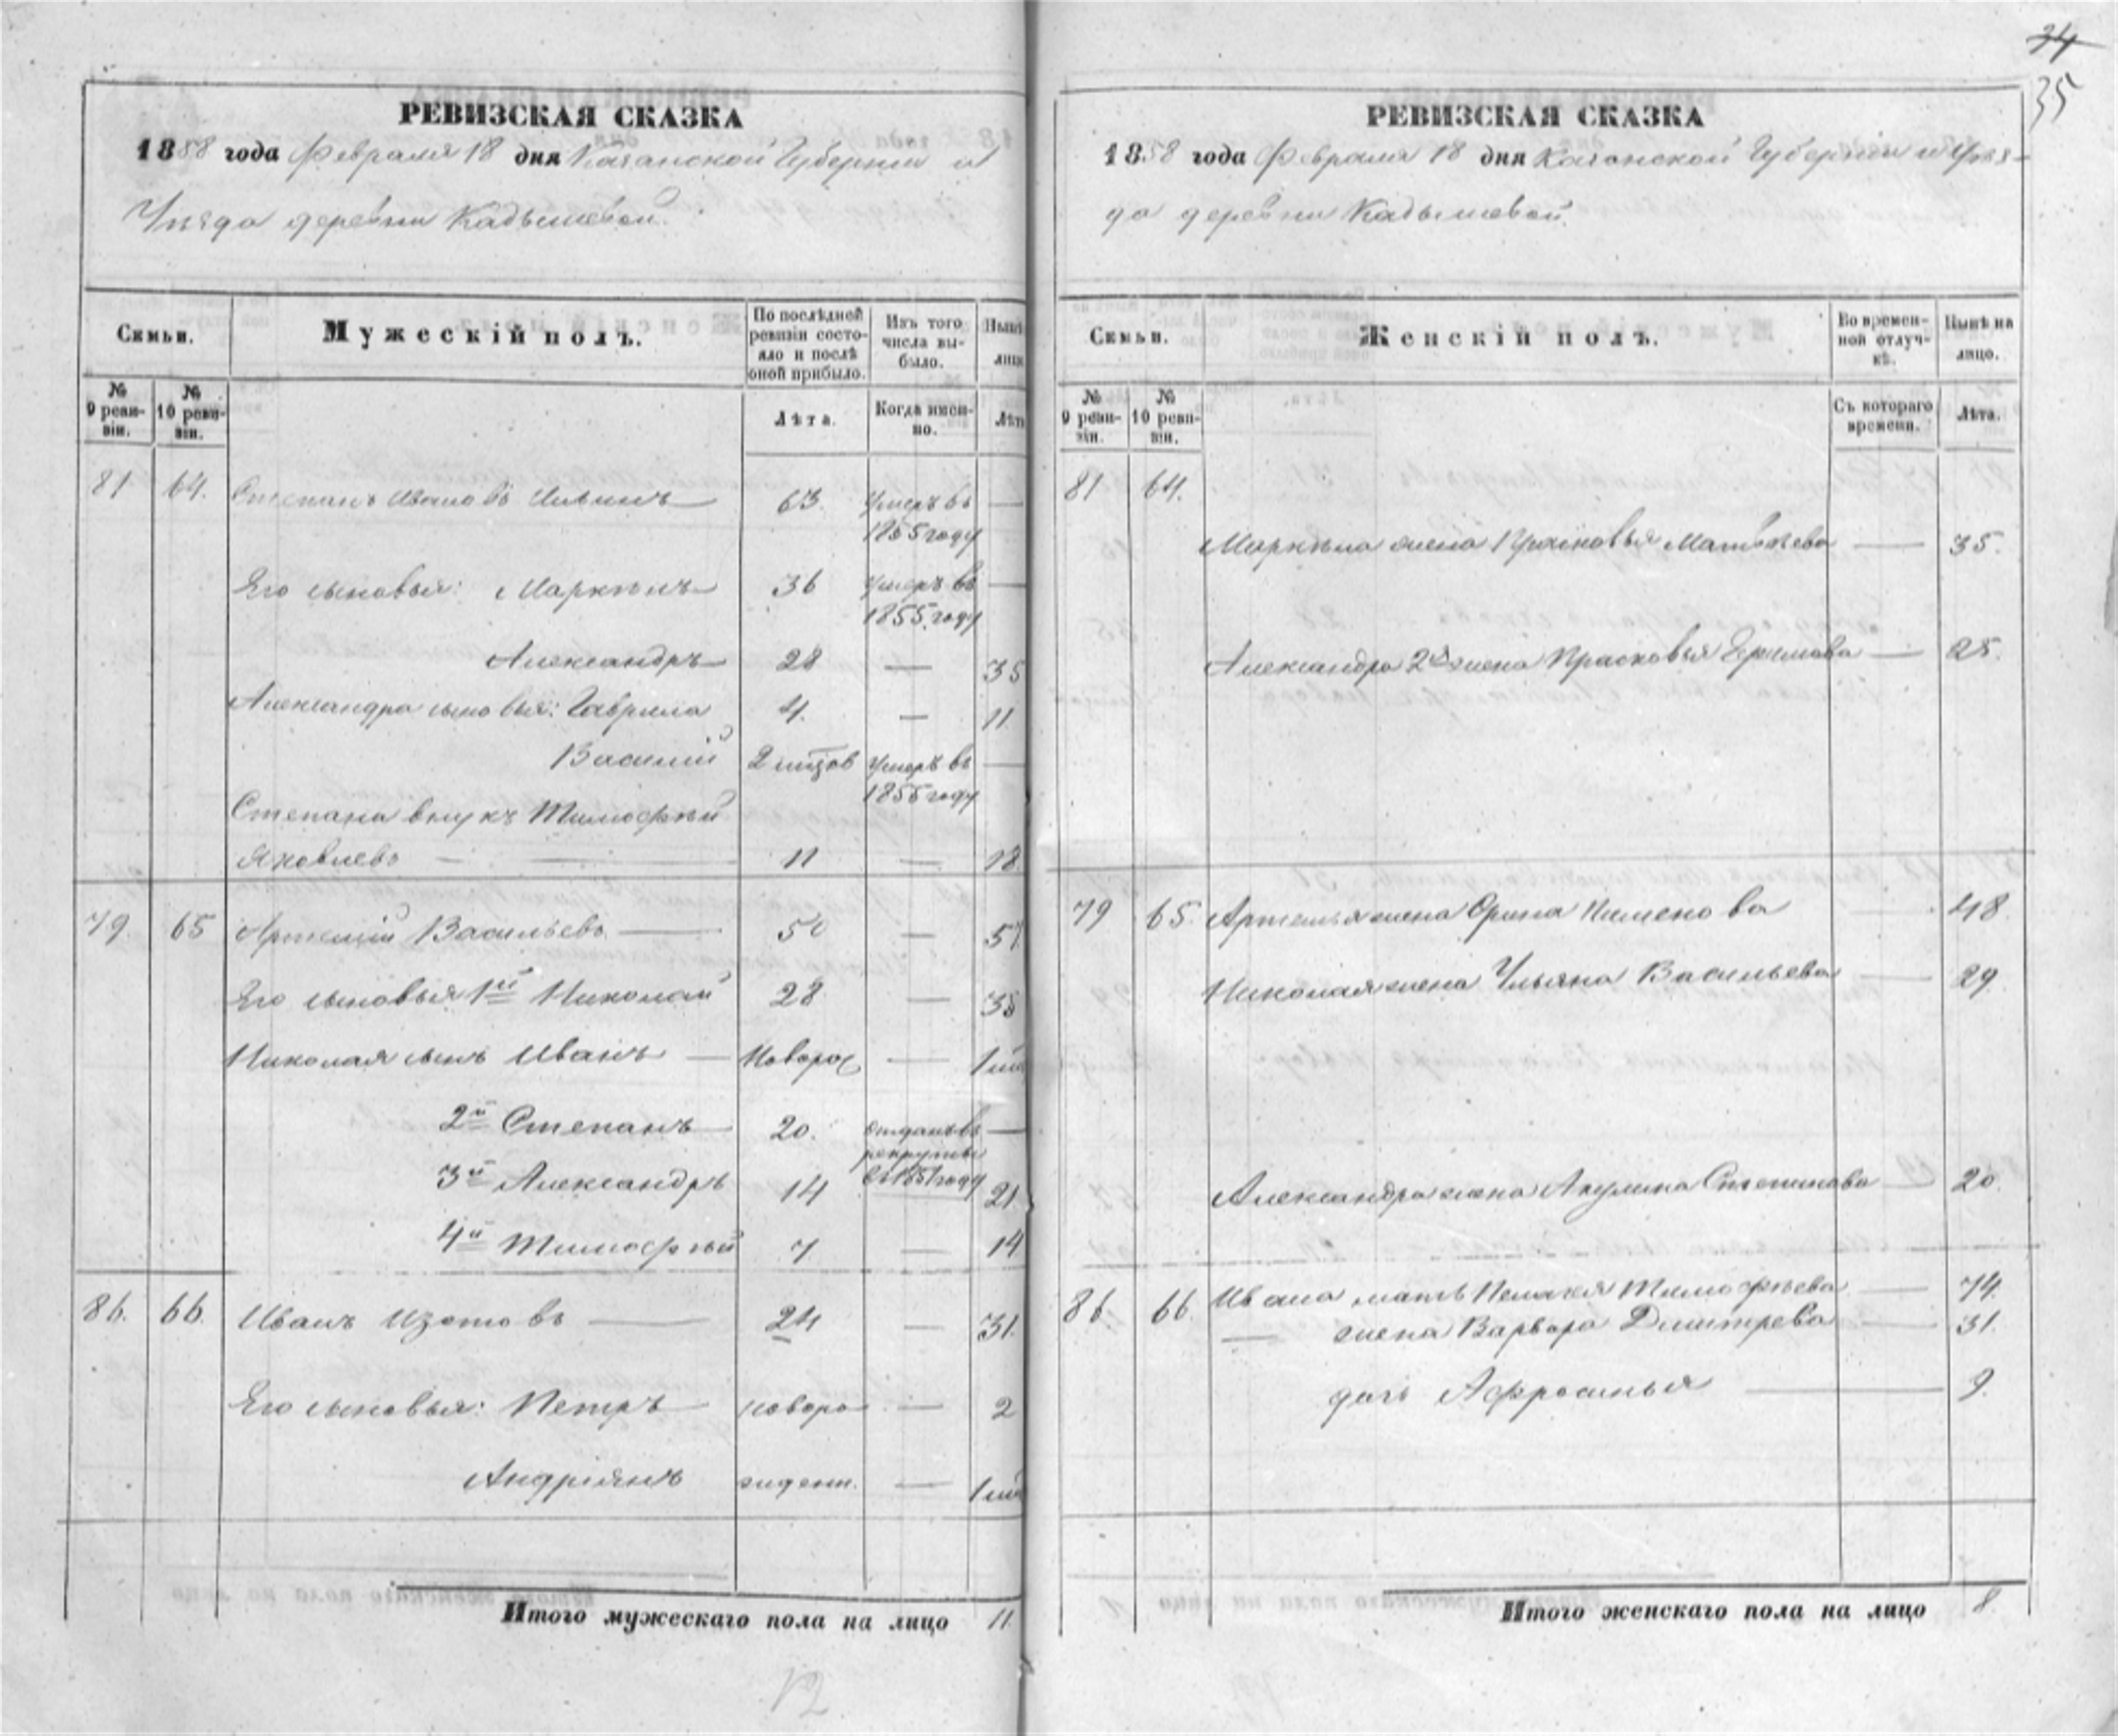 34
35
РЕВИЗСКАЯ СКАЗКА
1858 года Февраля 18 дня Казанской Губернии и
Уѣзда деревни Кадышевой.
Семьи.
Мужескій полъ.
По послѣдней ревизіи состояло и послѣ оной прибыло.
Изъ того числа выбыло.
Нынѣ
лиц
№ 9 ревизіи.
№ 10 ревизіи.
Лѣта.
Когда именно.
Лѣт
81 64. Степанъ Ивановъ Ильинъ 63. Умеръ въ 1855 году —
Его сыновья: Маркелъ 36 Умеръ въ 1855 году —
Александръ 28 — 35
Александра сыновья: Гаврила 4. — 11
Василій 2 мѣсяцов Умеръ въ 1855 году —
Степана внукъ Тимофѣй
Яковлевъ — — 11 — 18.
79. 65 Артемій Васильевъ — 50 — 57
Его сыновья 1й Николай 28 — 35
Николая сынъ Иванъ — Новорож — 1 мѣ
2й Степанъ 20. отданъ въ рекруты въ 1851 году —
3й Александръ 14 21.
4й Тимофѣй 7 — 14
86. 66. Иванъ Изотовъ — 24 — 31.
Его сыновья: Петръ новоро — 2
Андріянъ жденн. — 1 мѣ
Итого мужескаго пола на лицо 11.
12
РЕВИЗСКАЯ СКАЗКА
1858 года Февраля 18 дня Казанской Губерніи и Уѣз-
да деревни Кадышевой.
Семьи.
Женскій полъ.
Во временной отлучкѣ.
Нынѣ на лицо.
№ 9 ревизіи.
№ 10 ревизіи.
Съ котораго времени.
Лѣта.
81 64.
Маркела жена Прасковья Матвѣева — 35.
Александра 2я жена Прасковья Ефимова — 25.
79 65. Артемья жена Орина Пименова 48
Николая жена Ульяна Васильева — 29
Александра жена Акулина Степанова — 20.
86. 66 Ивана мать Пелагея Тимофѣева — 74.
— жена Варвара Дмитрева — 31.
дочь Афросинья — 9.
Итого женскаго пола на лицо 8.